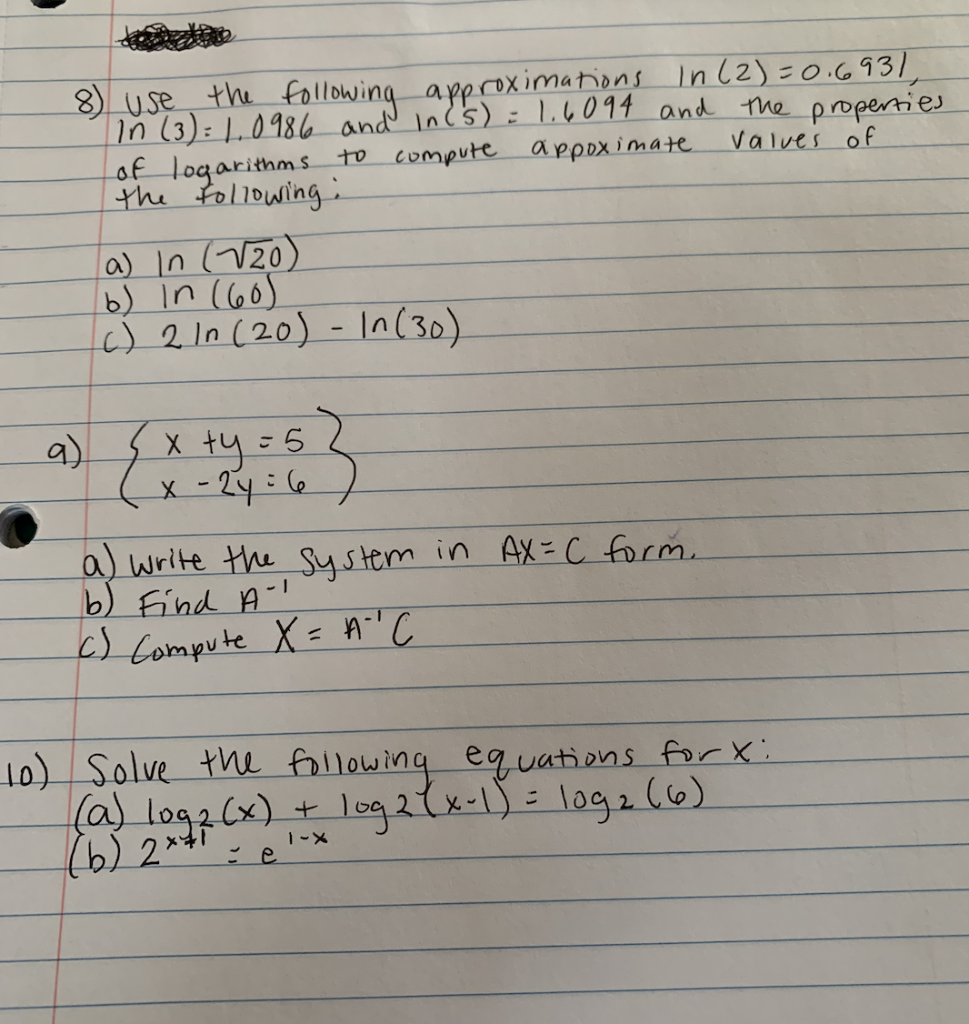 8) Use the following approximations ln(2) = 0.6931,
ln(3) = 1.0986 and ln(5) = 1.6094 and the properties
of logarithms to compute appoximate values of
the following:
a) ln(√20)
b) ln(60)
c) 2 ln(20) - ln(30)
9) { x + y = 5 }
x - 2y = 6
a) Write the system in AX = C form.
b) Find A⁻¹
c) Compute X = A⁻¹ C
10) Solve the following equations for x:
(a) log₂(x) + log₂(x-1) = log₂(6)
(b) 2ˣ⁺¹ = e¹⁻ˣ